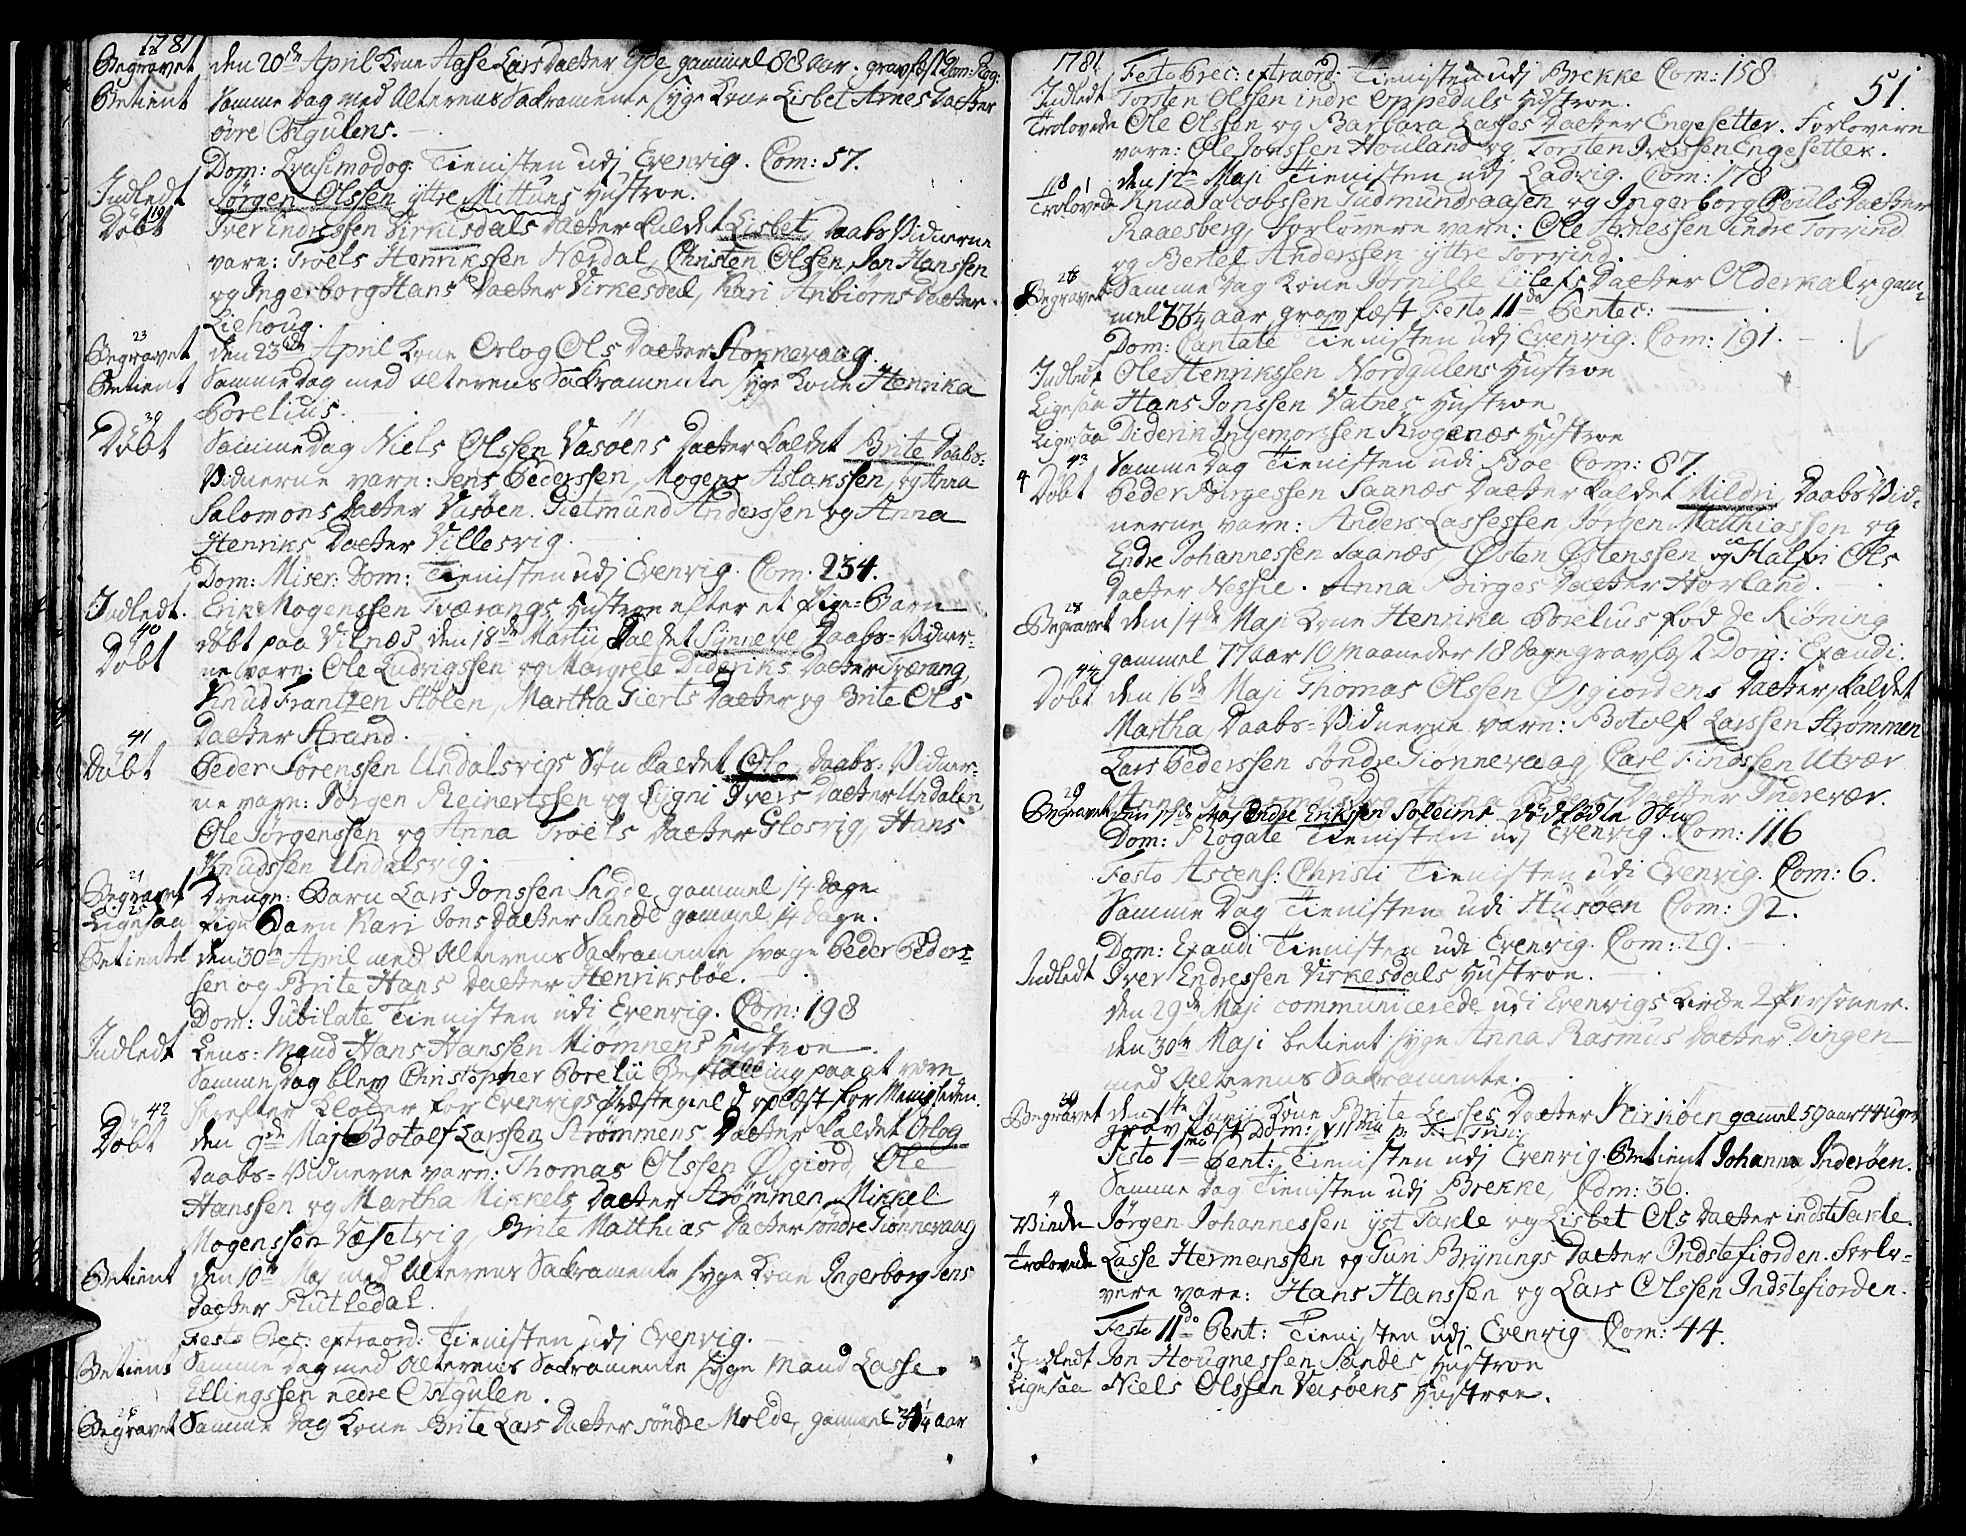 1781
Begravet den 20de April Kone Aase Lars Datter Yde gammel 88 aar. gravfæst Dom:
Betient Samme Dag med Alterens Sakramente syge Kone Lisbet Arnes Datter
övre Ostgulens.
Dom: Qvasimodog. Tienisten udj Evenvig. Com: 57.
Indledt Jørgen Olssen yttre Mittuns Hustroe.
Döbt Iver Endressen Virkesdals Datter kaldet Lisbet, Daabs Vidnerne
vare: Troels Henrikssen Nærdal, Christen Olssen, Jon Hanssen
og Ingerborg Hans Datter Virkesdal, Kari Anbiörns Datter
Liehoug.
23
Begravet den 23de April Kone Orlog Ols Datter Honnevaag.
Betient Samme Dag med Alterens Sakramente syge Kone Henrika
Borelius.
39
Döbt Samme Dag Niels Olssen Vasöens Datter kaldet Brite Daabs-
Vidnerne vare: Jens Pederssen, Mogens Aslakssen, og Anna
Salomons Datter Vasöen. Gietmund Anderssen og Anna
Henriks Datter Villesvig.
Dom: Miser: Dom: Tienisten udj Evenvig. Com: 234.
Indledt. Erik Mogenssen Tværangs Hustroe efter et Pige-Barn
40
Döbt döbt paa Vilnæs den 18de Martii kaldet Synneve Daabs-Vidner-
ne vare: Ole Ludvigssen og Margrete Dideriks Datter Tværang,
Knud Frantzen Holen, Martha Gierts Datter og Brite Ols
Datter Strand.
41
Döbt Peder Sørenssen Undalsvigs Sön kaldet Ole, Daabs-Vidner-
ne vare: Jørgen Reinertssen og Signi Ivers Datter Undalen,
Ole Jørgenssen og Anna Troels Datter Glosvig, Hans
Knudssen Undalsvig.
Begravet Drenge-Barn Lars Jonssen Sande gammel 14 dage
Ligesaa Pige Barn Kari Jons Datter Sande gammel 14 dage.
Betiente den 30te April med Alterens Sakramente svage Peder Peders-
sen og Brite Hans Datter Henriksböe.
Dom: Jubilate Tienisten udi Evenvig. Com: 198
Indledt Lens-Mand Hans Hanssen Miömnens Hustroe.
Samme Dag blev Christopher Borelii Bestalling paa at være
herefter Kloker for Evenvigs Præstegield oplæst for Menigheden.
42
Döbt den 9de Maji Botolf Larssen Strømmens Datter kaldet Orlog
Daabs-Vidnerne vare: Thomas Olssen Øsgiord, Ole
Hanssen og Martha Mikkels Datter Strömmen, Mikkel
Mogenssen Væsetvig, Brite Matthias Datter söndre Giönnevaag
Betient den 10de Maj med Alterens Sakramente syge Kone Ingerborg Jens
Datter Flutledal.
Festo Prec: extraord: Tienisten udj Evenvig.
Betient Samme Dag med Alterens Sakramente syge Mand Lasse
Ellingssen nedre Ostgulen.
Begravet Samme Dag Kone Brite Lars Datter söndre Molde, gammel aar
1781 51
Festo Prec: extraord: Tienisten udj Brekke Com: 158
Indledt Torsten Olssen indre Oppedals Hustroe.
Trolovede Ole Olssen og Barbara Lasses Datter Engesetter. Forlovere
vare: Ole Jonssen Houland og Torsten Iverssen Engesetter.
den 12te Maji Tienisten udj Ladvig. Com: 178
Trolovede Knud Jacobssen Gudmundsaasen og Ingerborg Pouls Datter
Raaesberg, Forlovere vare: Ole Arnessen indre Torvind
og Bertel Anderssen yttre Torvind.
Begravet Samme Dag Kone Jørnille Eilefs Datter Olderkal gam-
mel aar gravfæst Festo IIda Pentec:
Dom: Cantate Tienisten udj Evenvig. Com: 191.
Indledt Ole Henrikssen Nordgulens Hustroe
Ligesaa Hans Jonssen Vatnes Hustroe
Ligesaa Diderik Ingemorssen Krogenæs Hustroe
43 Samme Dag Tienisten udi Boe Com: 87.
4 Döbt Peder Birgessen Saanæs Datter kaldet Mildri Daabs Vid-
nerne vare: Anders Lassessen, Jørgen Matthiassen og
Endre Johannessen Saanæs, Østen Østenssen og Halfri Ols
Datter Nessie. Anna Birges Datter Horland.
28
Begravet den 14de Maji Kone Henrika Borelius föd de Kiöning
gammel 77 aar 10 Maaneder 18 dage gravfæst Dom: Exaudi.
44
Döbt den 16de Maji Thomas Olssen Øsgiordens Datter, kaldet
Martha, Daabs-Vidnerne vare: Botolf Larssen Strømmen
Lars Pederssen söndre Gionnevaag, Carl Findssen Utvær
Datter Indrevær.
29
Begravet den 17de Maj Endre Erikssen Soleims dödfödte Sön
Dom: Rogate Tienisten udj Evenvig. Com: 116
Festo Ascens: Christi Tienisten udi Evenvig. Com: 6.
Samme Dag Tienisten udi Husöen Com: 92.
Dom: Exaudi Tienisten udi Evenvig. Com: 29.
Indledt Iver Endressen Virkesdals Hustroe.
den 29de Maji communicerede udi Evenvigs Kirke 2 Personer.
den 30te Maji betient syge Anna Rasmus Datter Dingen
med Alterens Sakramente.
Begravet den 1ste Junij Kone Brite Lasses Datter Kirköen gamel 59 aar 44 Uger
gravfæst Dom: VIIma p. F: Trin:
Festo Imo Pent: Tienisten udj Evenvig. Betient Johanna Inderöen.
Samme Dag Tienisten udj Brekke, Com: 36.
4
Viede Jørgen Johannessen yst Takle og Lisbet Ols Datter indst Takle.
Trolovede Lasse Hermanssen og Guri Brynings Datter Indstefiorden. Forlo-
vere vare: Hans Hanssen og Lars Olssen Indstefiorden.
Festo IIdo Pent: Tienisten udj Evenvig Com: 44.
Indledt Jon Hougnessen Sandes Hustroe
Ligesaa Niels Olssen Vasöens Hustroe.